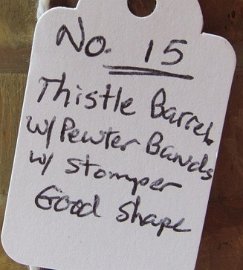 No. 15
Thistle Barrel
w/ Pewter Bands
w/ stomper
Good Shape